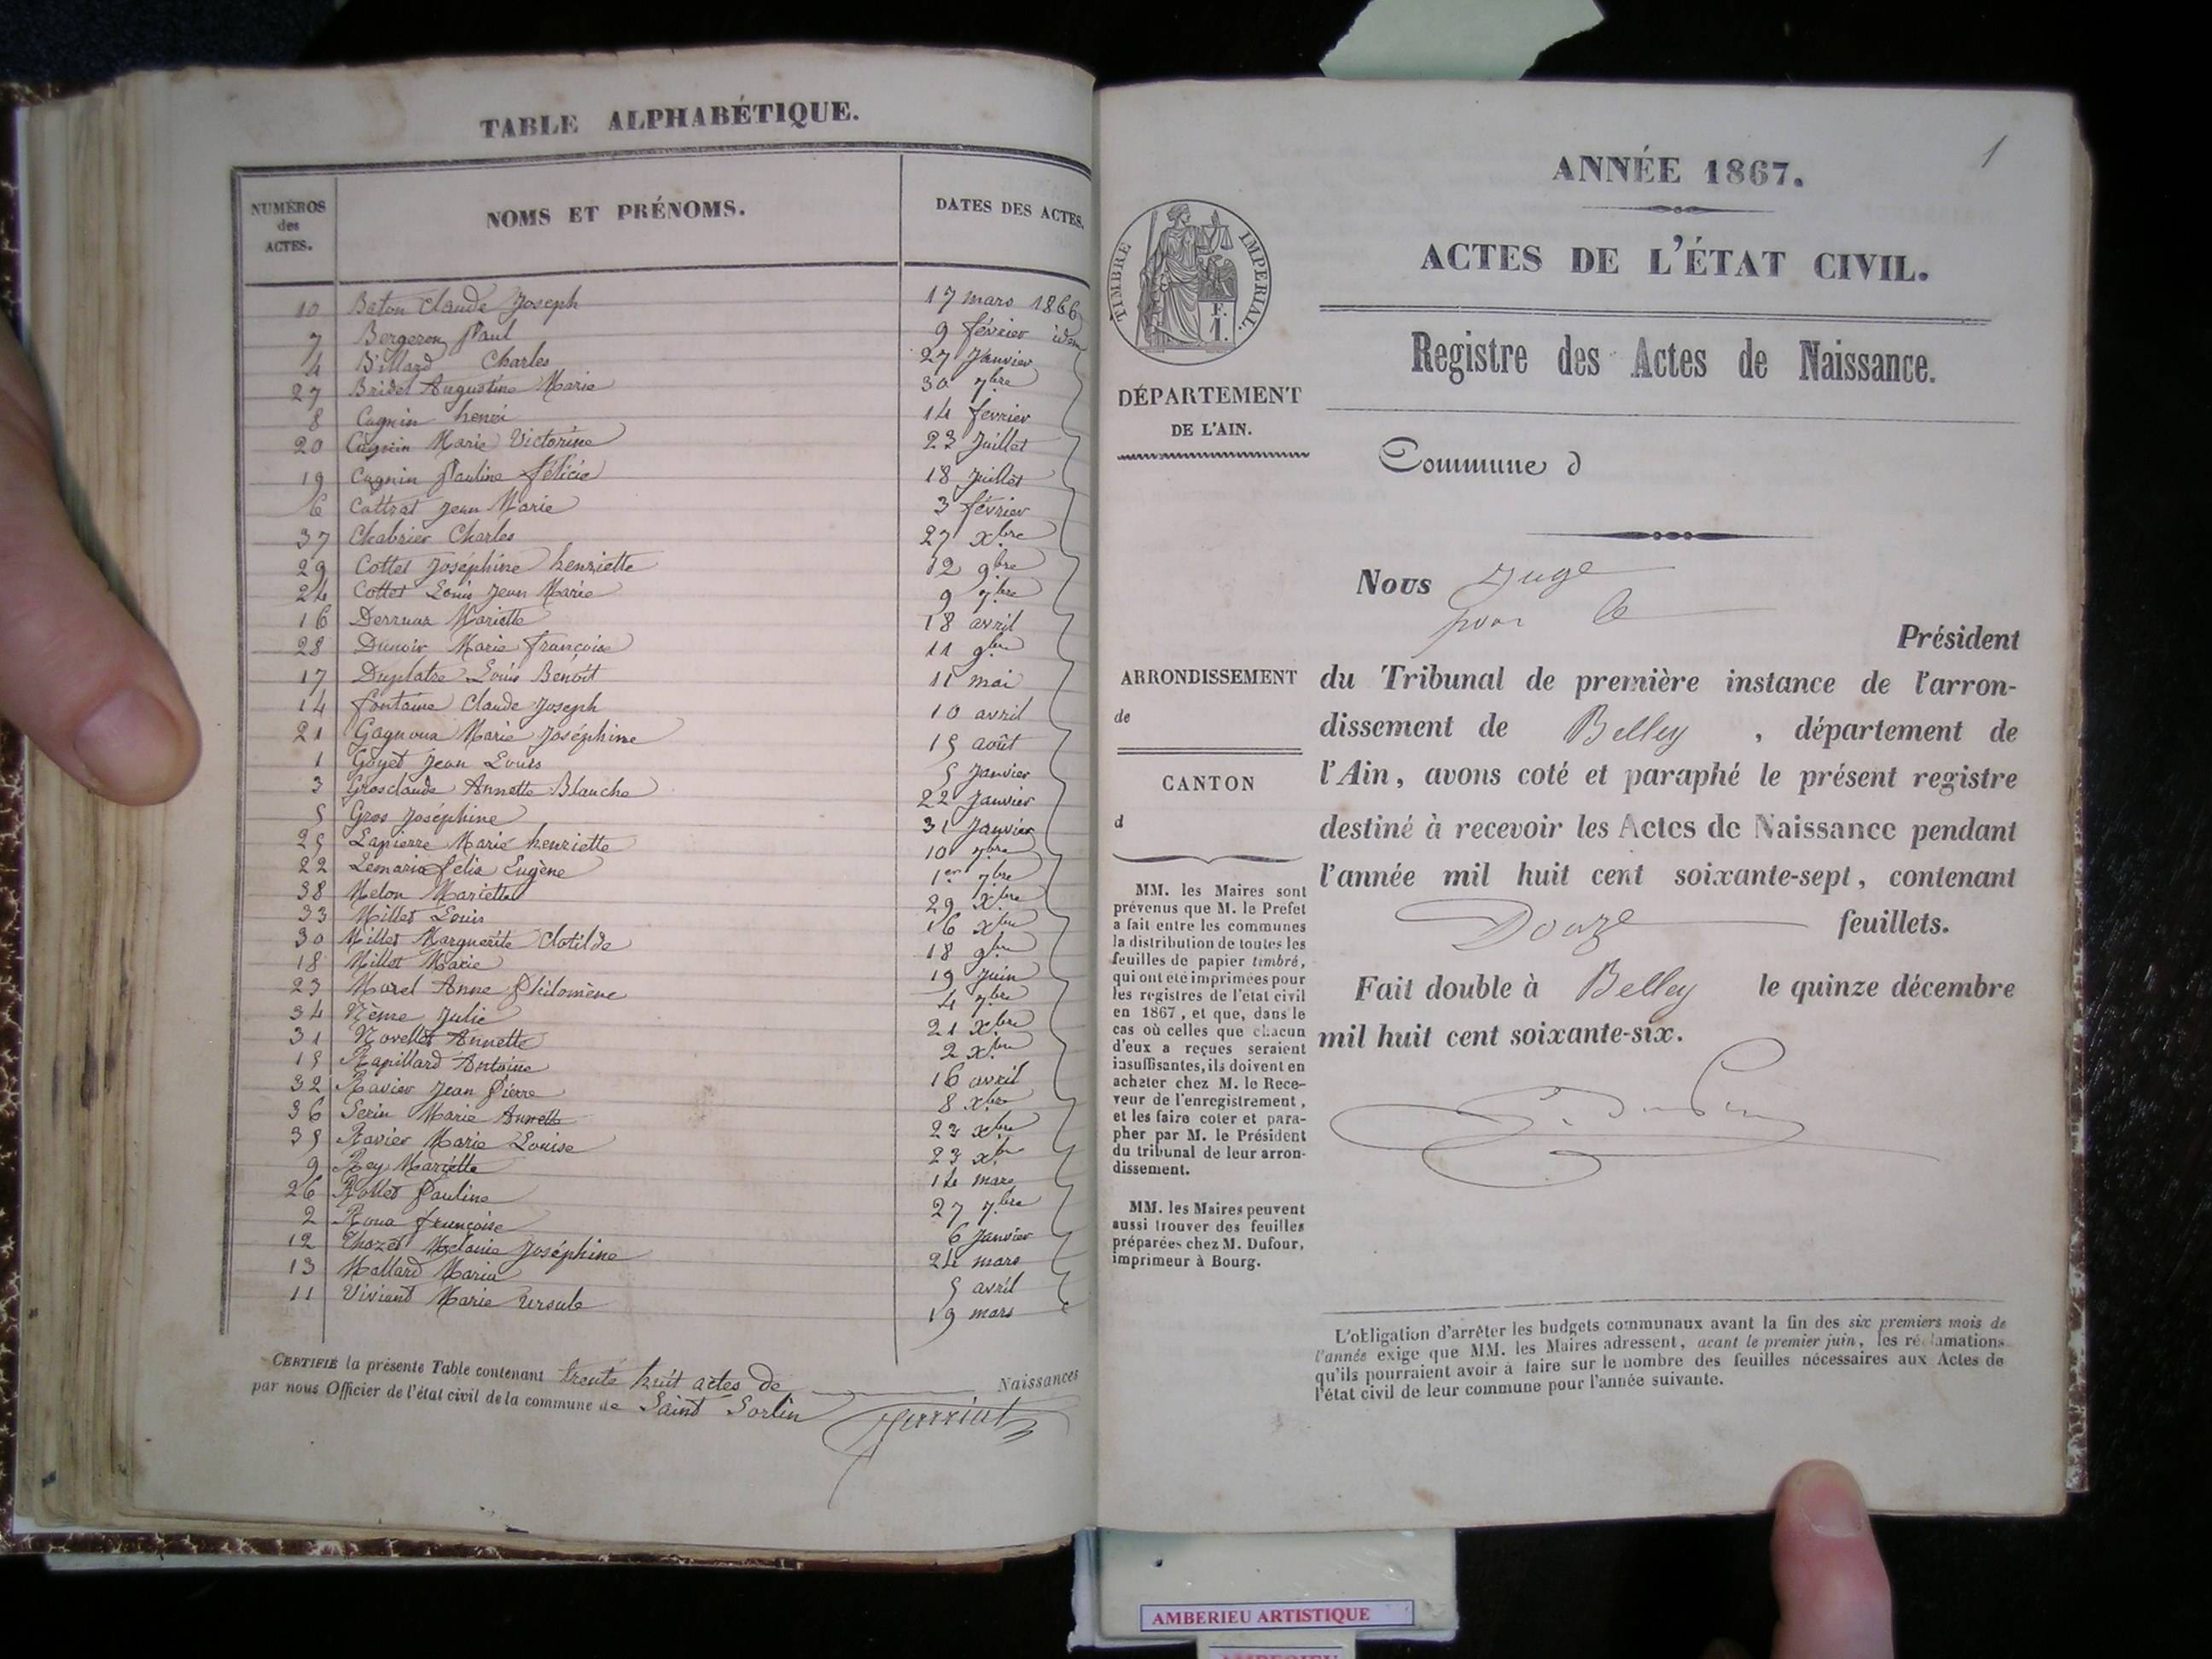 TABLE ALPHABÉTIQUE.
NUMÉROS des ACTES. NOMS ET PRÉNOMS. DATES DES ACTES.
10 Baton Claude Joseph 17 mars 1866
7 Bergeron Paul 9 février idem
4 Billard Charles 27 Janvier
27 Bridet Augustine Marie 30 7bre
8 Cagnin henri 14 fevrier
20 Cagnin Marie Victorine 23 Juillet
19 Cagnin Pauline félicie 18 Juillet
6 Cottrat Jean Marie 3 février
37 Chabrier Charles 27 xbre
29 Cottet Joséphine henriette 12 9bre
24 Cottet Louis Jean Marie 9 7bre
16 Mariette 18 avril
28 Marie françoise 11 9bre
17 Duplatre Louis Benoît 11 mai
14 fontaine Claude Joseph 10 avril
21 Gagnoux Marie Joséphine 15 août
1 Goyet Jean Louis 5 Janvier
3 Grosclaude Annette Blanche 22 Janvier
5 Gros Joséphine 31 Janvier
25 Lapierre Marie henriette 10 7bre
22 Lemaria félix Eugène 1er 7bre
38 Melon Mariette 29 Xbre
33 Millet Louis 16 xbre
30 Millet Marguerite Clotilde 18 9bre
18 Millet Marie 19 Juin
23 Morel Anne Philomène 4 7bre
34 Nème Julie 21 xbre
31 Novellet Annette 2 xbre
15 Rapillard Antoine 16 avril
32 Ravier Jean Pierre 8 xbre
36 Serin Marie Annette 23 xbre
35 Ravier Marie Louise 23 xbre
9 Rey Mariette 14 mars
26 Rollet Pauline 27 7bre
2 Roux françoise 6 Janvier
12 Thozet Mélanie Joséphine 24 mars
13 Mallard Maria 5 avril
11 Viviant Marie Ursule 19 mars
CERTIFIÉ la présente Table contenant trente huit actes de Naissances
par nous Officier de l'état civil de la commune de Saint Sorlin
1
ANNÉE 1867.
ACTES DE L'ÉTAT CIVIL.
TIMBRE IMPERIAL.
F.
1.
Registre des Actes de Naissance.
DÉPARTEMENT
DE L'AIN.
Commune d
Nous Juge
pour le
Président
ARRONDISSEMENT
de
CANTON
d
du Tribunal de première instance de l'arron-
dissement de Belley , département de
l'Ain, avons coté et paraphé le présent registre
destiné à recevoir les Actes de Naissance pendant
l'année mil huit cent soixante-sept, contenant
Douze feuillets.
Fait double à Belley le quinze décembre
mil huit cent soixante-six.
MM. les Maires sont
prévenus que M. le Préfet
a fait entre les communes
la distribution de toutes les
feuilles de papier timbré,
qui ont été imprimées pour
les registres de l'état civil
en 1867, et que, dans le
cas où celles que chacun
d'eux a reçues seraient
insuffisantes, ils doivent en
acheter chez M. le Rece-
veur de l'enregistrement,
et les faire coter et para-
pher par M. le Président
du tribunal de leur arron-
dissement.
MM. les Maires peuvent
aussi trouver des feuilles
préparées chez M. Dufour,
imprimeur à Bourg.
L'obligation d'arrêter les budgets communaux avant la fin des six premiers mois de
l'année exige que MM. les Maires adressent, avant le premier juin, les réclamations
qu'ils pourraient avoir à faire sur le nombre des feuilles nécessaires aux Actes de
l'état civil de leur commune pour l'année suivante.
AMBERIEU ARTISTIQUE
AMBERIEU